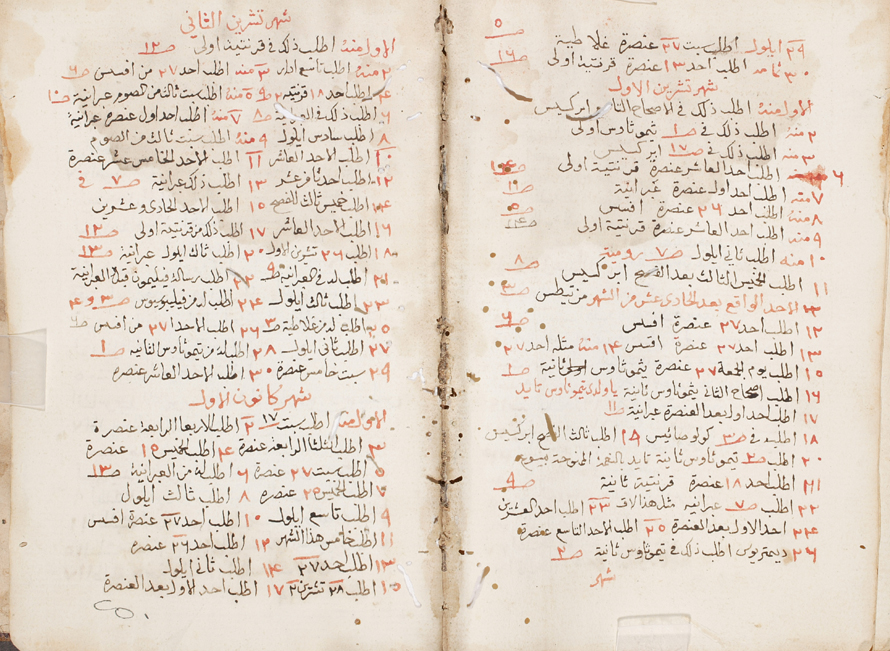 ٢٩ ايلول اطلب سبت ٢٧ عنصرة غلاطية ص ٥
٣٠ ثامنه اطلب احد ١٣ عنصرة قرنتية اولى ص ١٦
شهر تشرين الاول
الاول منه اطلب ذلك في الاصحاح الثاني ابركسيس
٢ منه اطلب ذلك في ص ١ تيموثاوس اولى
٣ منه اطلب ذلك في ص ١٧ ابركسيس
٦ اطلب احد العاشر عنصرة قرنتية اولى
٧ منه اطلب احد اول عنصرة عبرانية ص ١١
٨ منه اطلب احد ٢٦ عنصرة افسس ص ٥
٩ منه اطلب احد العاشر عنصرة قرنتية اولى ص ١٤
١٠ منه اطلب ثاني ايلول ص ٧ رومية
١١ اطلب الخميس الثالث بعد الفصح ابركسيس ص ٨
الاحد الواقع بعد الحادي عشر من الشهر من تيطس ص ٣
١٢ اطلب احد ٢٧ عنصرة افسس ص ٦
١٣ اطلب احد ٢٧ عنصرة افسس ١٤ منه مثله احد ٢٧
١٥ اطلب يوم الجمعة ٢٧ عنصرة تيموثاوس ثانية ص ١
١٦ اطلب اصحاح الثاني تيموثاوس ثانية ياولدي تيموثاوس تايد
١٧ اطلب احد اول بعد العنصرة عبرانية ص ١١
١٨ اطلبه في ص ٣ كولوصايس ١٩ اطلب ثالث الفصح ابركسيس
٢٠ اطلب ص ٢ تيموثاوس ثانية تايد بالنعمة الممنوحة
٢١ اطلب احد ١٨ عنصرة قرنتية ثانية ص ٩
٢٢ اطلب ص ٧ عبرانية مثل هذا ٢٣ اطلب احد العشرين
٢٤ احد الاول بعد العنصرة ٢٥ اطلب الاحد التاسع عنصرة
٢٦ ديمتريوس اطلب ذلك في تيموثاوس ثانية ص ٢
شهر
شهر تشرين الثاني
الاول منه اطلب ذلك في قرنتية اولى ص ١٢
٢ منه اطلب تاسع اذار ٣ منه اطلب احد ٢٧ من افسس ص ٦
٤ اطلب احد ١٨ قرنتية ٢ ص ٩ ٥ منه اطلب سبت ثالث من الصوم عبرانية ص ١٠
٦ اطلب ذلك في العبرانية ص ٨ ٧ منه اطلب احد اول عنصرة عبرانية
٨ اطلب سادس ايلول ٩ منه اطلب سبت ثالث من الصوم
١٠ اطلب الاحد العاشر ١١ اطلب الاحد الخامس عشر عنصرة
١٢ اطلب احد ثاني عشر ١٣ اطلب ذلك عبرانية ص ٧ في
١٤ اطلب خميس ثالث للفصح ١٥ اطلب الاحد الحادي وعشرين
١٦ اطلب الاحد العاشر ١٧ اطلب ذلك من قرنتية اولى ص ١٢
١٨ اطلب ٢٦ تشرين الاول ٢٠ اطلب ثالث ايلول عبرانية ص ١٣
٢١ اطلب له في العبرانية ص ٩ ٢٢ اطلب رسالة فيليمون قبلة العبرانية
٢٣ اطلب ثالث ايلول ٢٤ اطلب له من فيليبوسيوس ص ٣ و ٤
٢٥ اطلب له من غلاطية ص ٣ ٢٦ اطلب الاحد ٢٧ من افسس ص ٦
٢٧ اطلب ثاني ايلول ٢٨ اطلب له من تيموثاوس الثانية ص ١
٢٩ سبت خامس عنصرة ٣٠ اطلب الاحد العاشر عنصرة
شهر كانون الاول
الاول منه اطلب سبت ١٧ ٢ اطلب الاربعا الرابعة عنصرة
٣ اطلب الثلثا الرابعة عنصرة ٤ اطلب الخميس ١٥ عنصرة
٥ اطلب سبت ٢٧ عنصرة ٦ اطلب له من العبرانية ص ١٣
٧ اطلب الخميس ٢٥ عنصرة ٨ اطلب ثالث ايلول
٩ اطلب تاسع ايلول ١٠ اطلب احد ٢٧ عنصرة افسس
١١ اطلب خامس هذا الشهر ١٢ اطلب احد ٢٦ عنصرة
١٣ اطلب احد ٢٧ ١٤ اطلب ثاني ايلول
١٥ اطلب ٢٨ تشرين ٢ ١٧ اطلب احد الاول بعد العنصرة